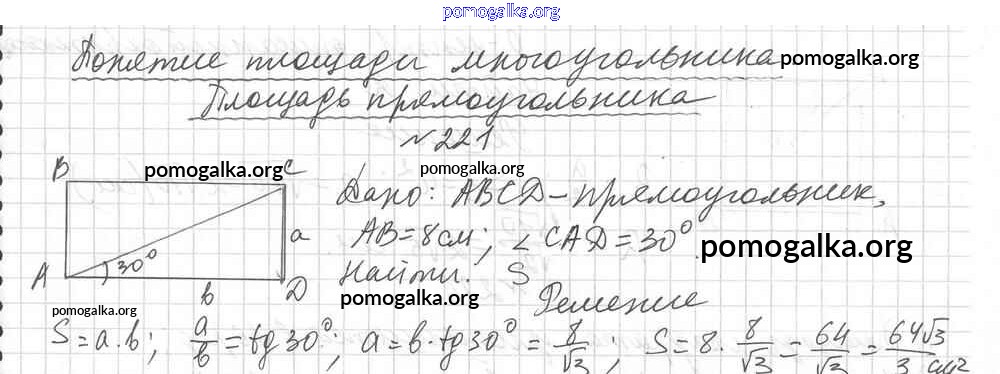 pomogalka.org
Понятие площади многоугольника pomogalka.org
Площадь прямоугольника
№221
B pomogalka.org C pomogalka.org
Дано: ABCD – прямоугольник,
a AB = 8 см; ∠CAD = 30° pomogalka.org
A 30° Найти: S
b D pomogalka.org Решение
pomogalka.org
S = a·b; a/b = tg30°; a = b·tg30° = 8/√3; S = 8·8/√3 = 64/√3 = 64√3/3 см²